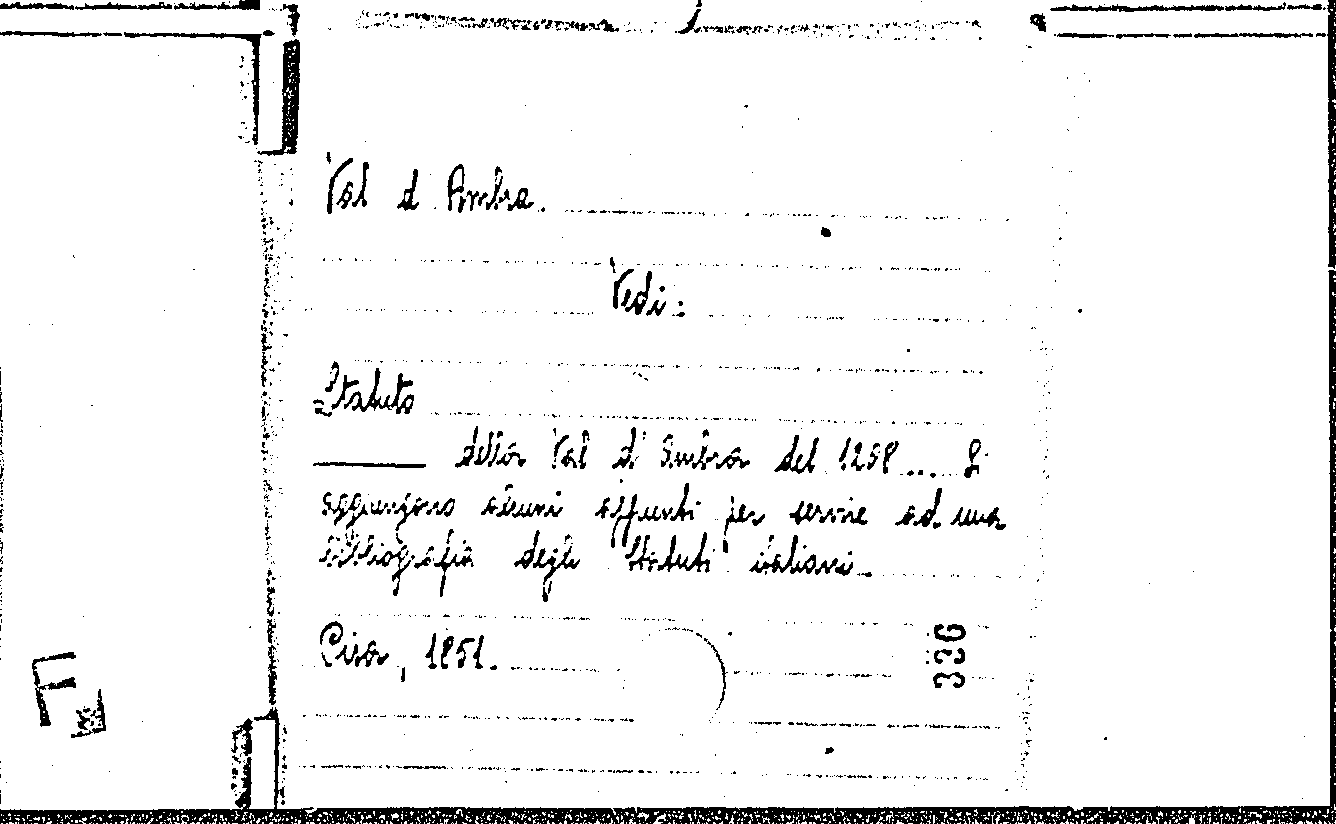 Val d'Ambra.
Vedi:
Statuto
della Val d'Ambra del 1208.... Si
aggiungono alcuni appunti per servire ad una
bibliografia degli Statuti italiani.
Pisa, 1851.
336